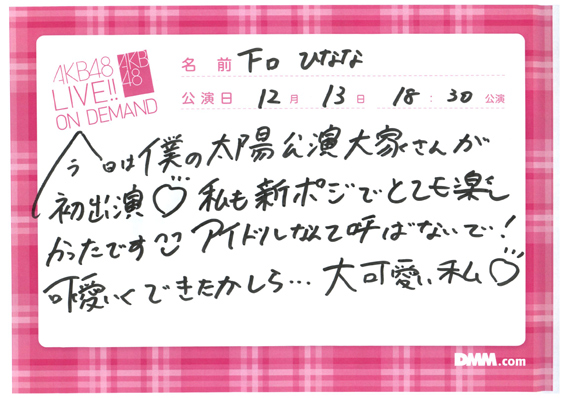 AKB48
LIVE!!
ON DEMAND
AKB
48
名前 下口 ひなな
公演日 12月 13日 18:30 公演
今日は僕の太陽公演大家さんが
初出演♡ 私も新ポジでとても楽し
かったです アイドルなんて呼ばないで!
可愛いくできたかしら… 大可愛い私♡
DMM.com